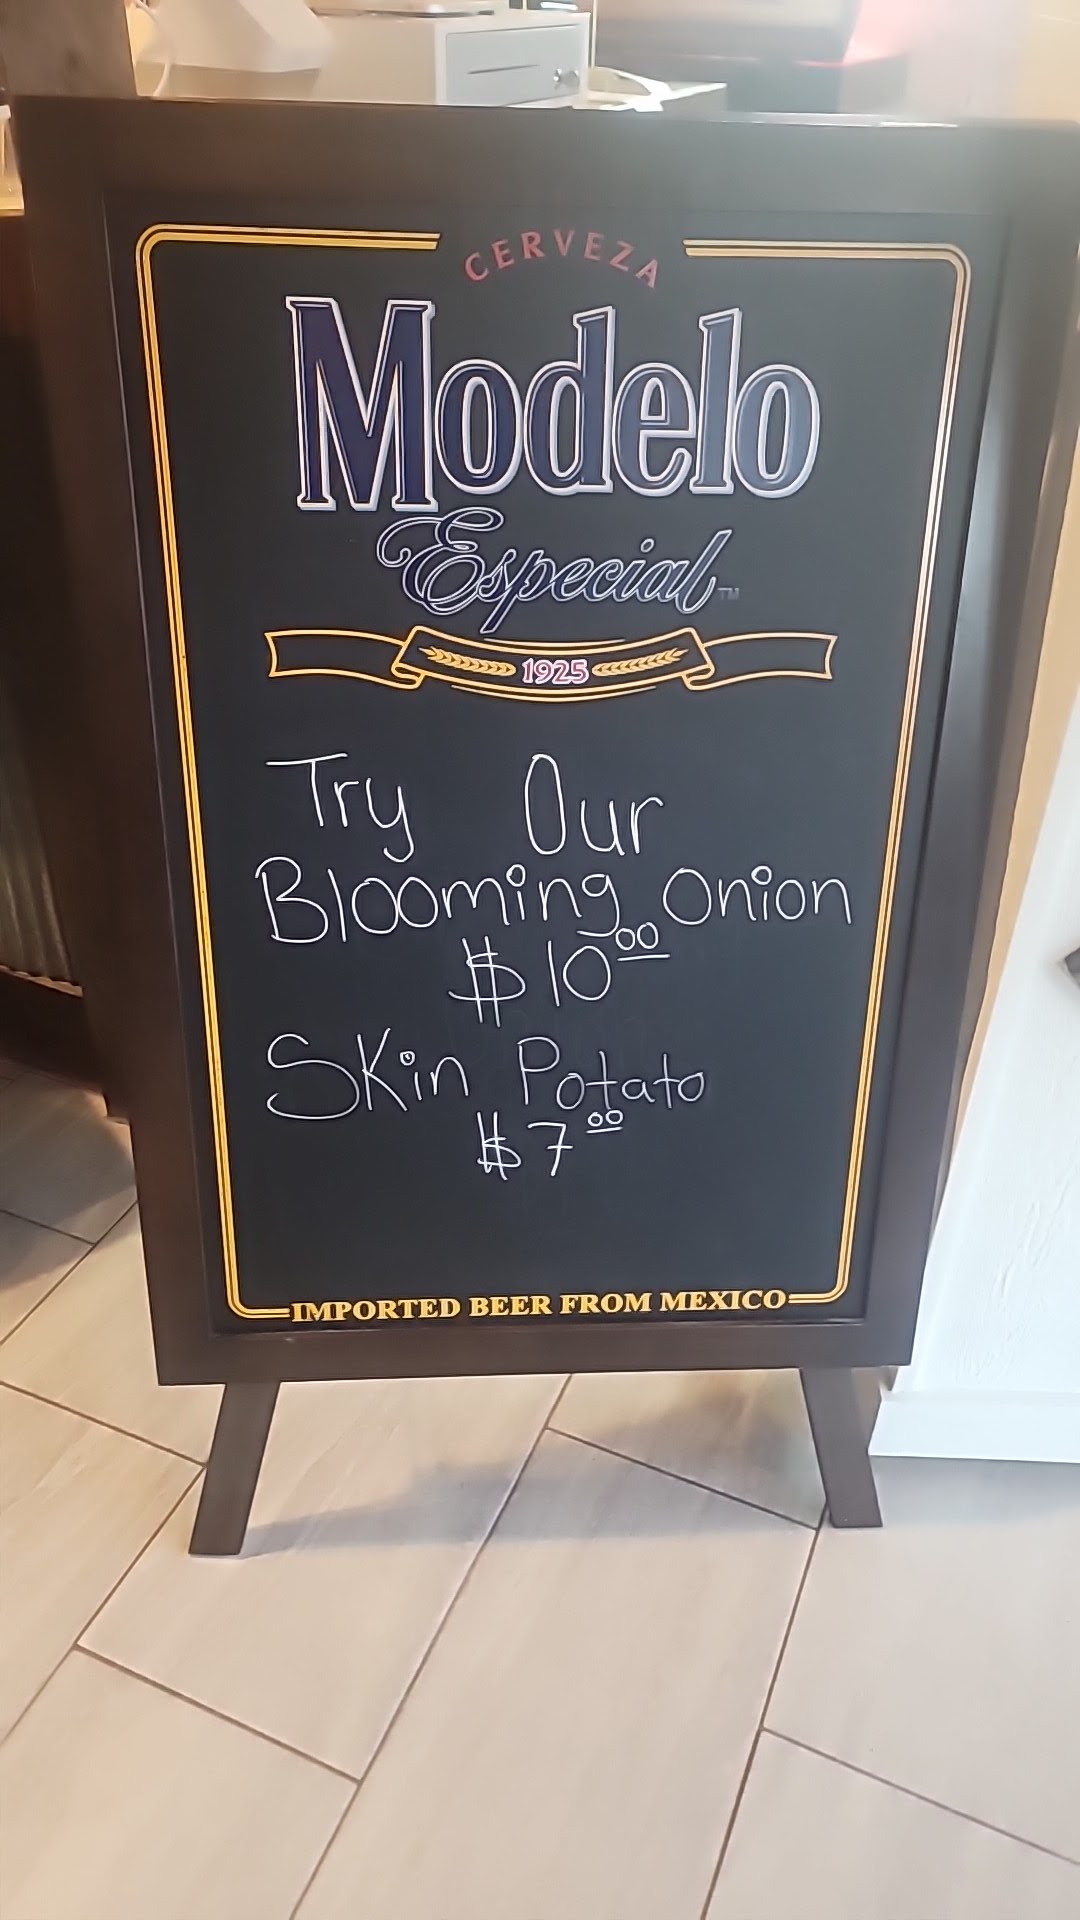 CERVEZA
Modelo
Especial™
1925
Try Our
Blooming Onion
$10.00
Skin Potato
$7.00
IMPORTED BEER FROM MEXICO